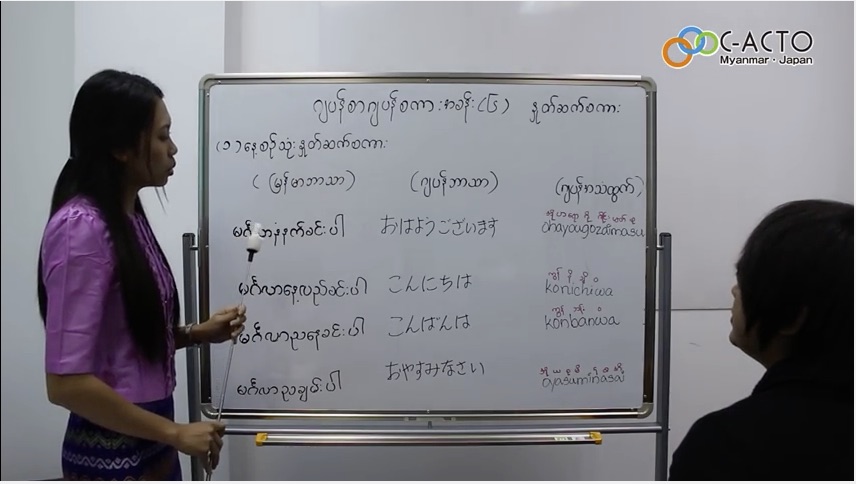 C-ACTO
Myanmar・Japan
ဂျပန်စာဂျပန်စကားအခန်း(၆) နှုတ်ဆက်စကား
(၁)နေ့စဉ်သုံးနှုတ်ဆက်စကား
(မြန်မာဘာသာ) (ဂျပန်ဘာသာ) (ဂျပန်အသံထွက်)
မင်္ဂလာနံနက်ခင်းပါ おはようございます ohayougozaimasu
မင်္ဂလာနေ့လည်ခင်းပါ こんにちは konichiwa
မင်္ဂလာညနေခင်းပါ こんばんは konbanwa
မင်္ဂလာညချမ်းပါ おやすみなさい oyasuminasai